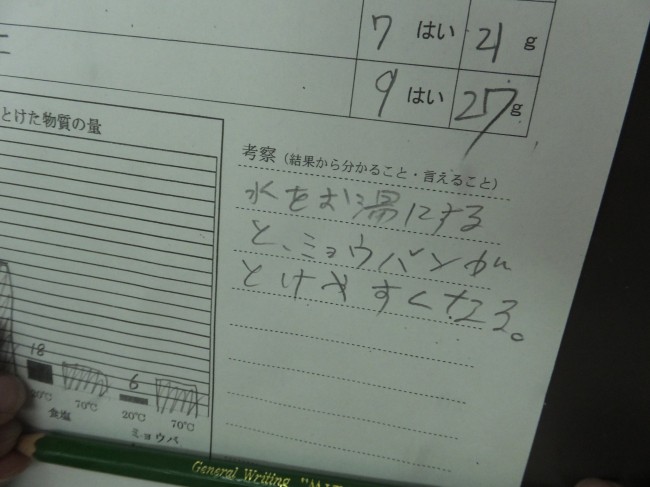 7 はい 21 g
9 はい 27 g
とけた物質の量
考察（結果から分かること・言えること）
水をお湯にする
と、ミョウバンが
とけやすくなる。
18
6
20℃ 70℃ 20℃ 70℃
食塩 ミョウバ
General Writing